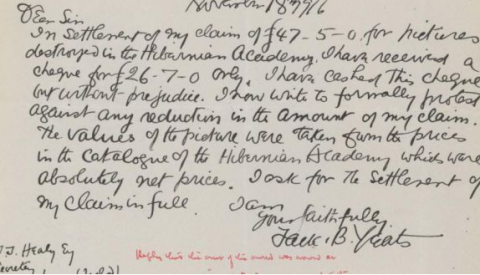 Dear Sir
In Settlement of my claim of £47-5-0. for pictures
destroyed in the Hibernian Academy. I have received a
cheque for £26-7-0 only. I have cashed this cheque
but without prejudice. I now write to formally protest
against any reduction in the amount of my claim.
The values of the picture were taken from the prices
in the catalogue of the Hibernian Academy which were
absolutely net prices. I ask for the Settlement of
my claim in full
I am
Yours faithfully
Jack. B. Yeats
J. Healy Esq
Secretary